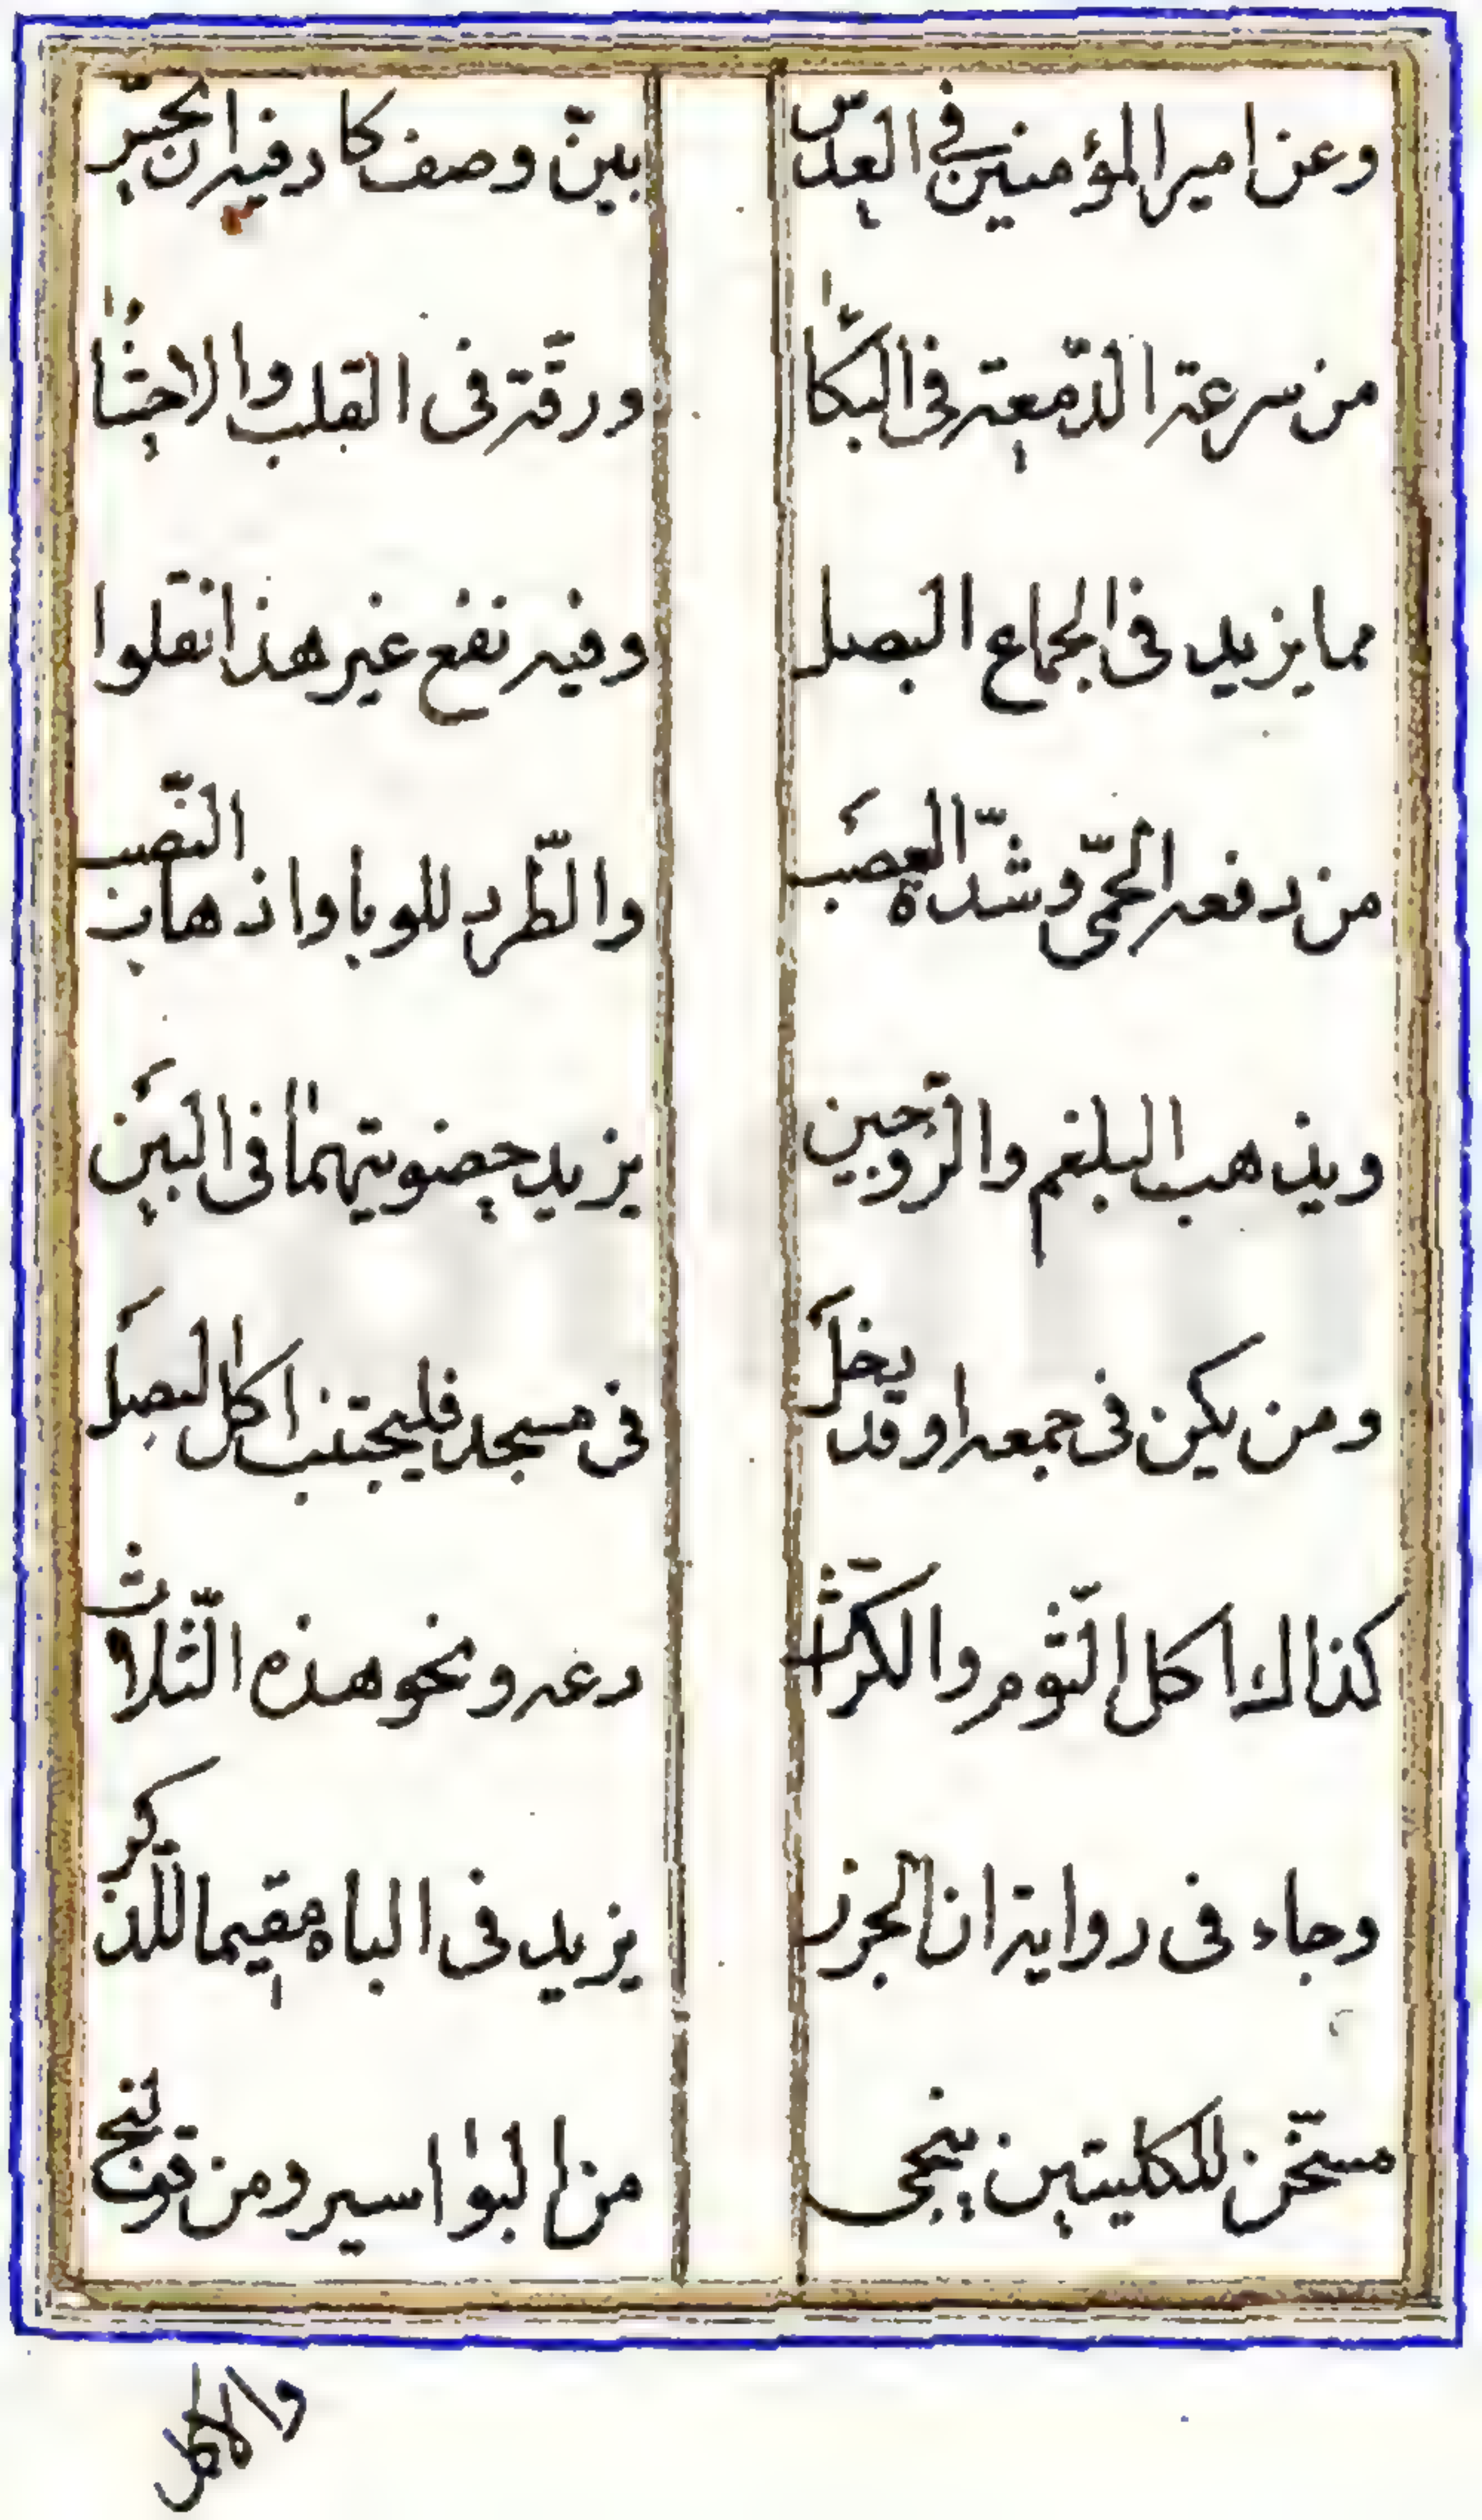 وعن امير المؤمنين في العدس بين وصف كاد فيه ان يحس
من سرعة الدّمعة فى البكاء ورقّة فى القلب والاحشاء
مما يزيد فى الجماع البصل وفيه نفع غير هذا نقلوا
من دفعه الحمّى وشدّة العصب والطّرد للوبا واذهاب النّصب
ويذهب البلغم والزّوجين يزيد حضويتهما فى البين
ومن يكن فى جمعه او قد يخل فى مسجد فليجتنب اكل البصل
كذاك اكل الثّوم والكرّاث دعه ونحو هذه الثّلاث
وجاء فى رواية ان الجزر يزيد فى الباه مقيما للذّكر
مسخّن للكليتين ينجى من البواسير ومن قولنج
والاكل